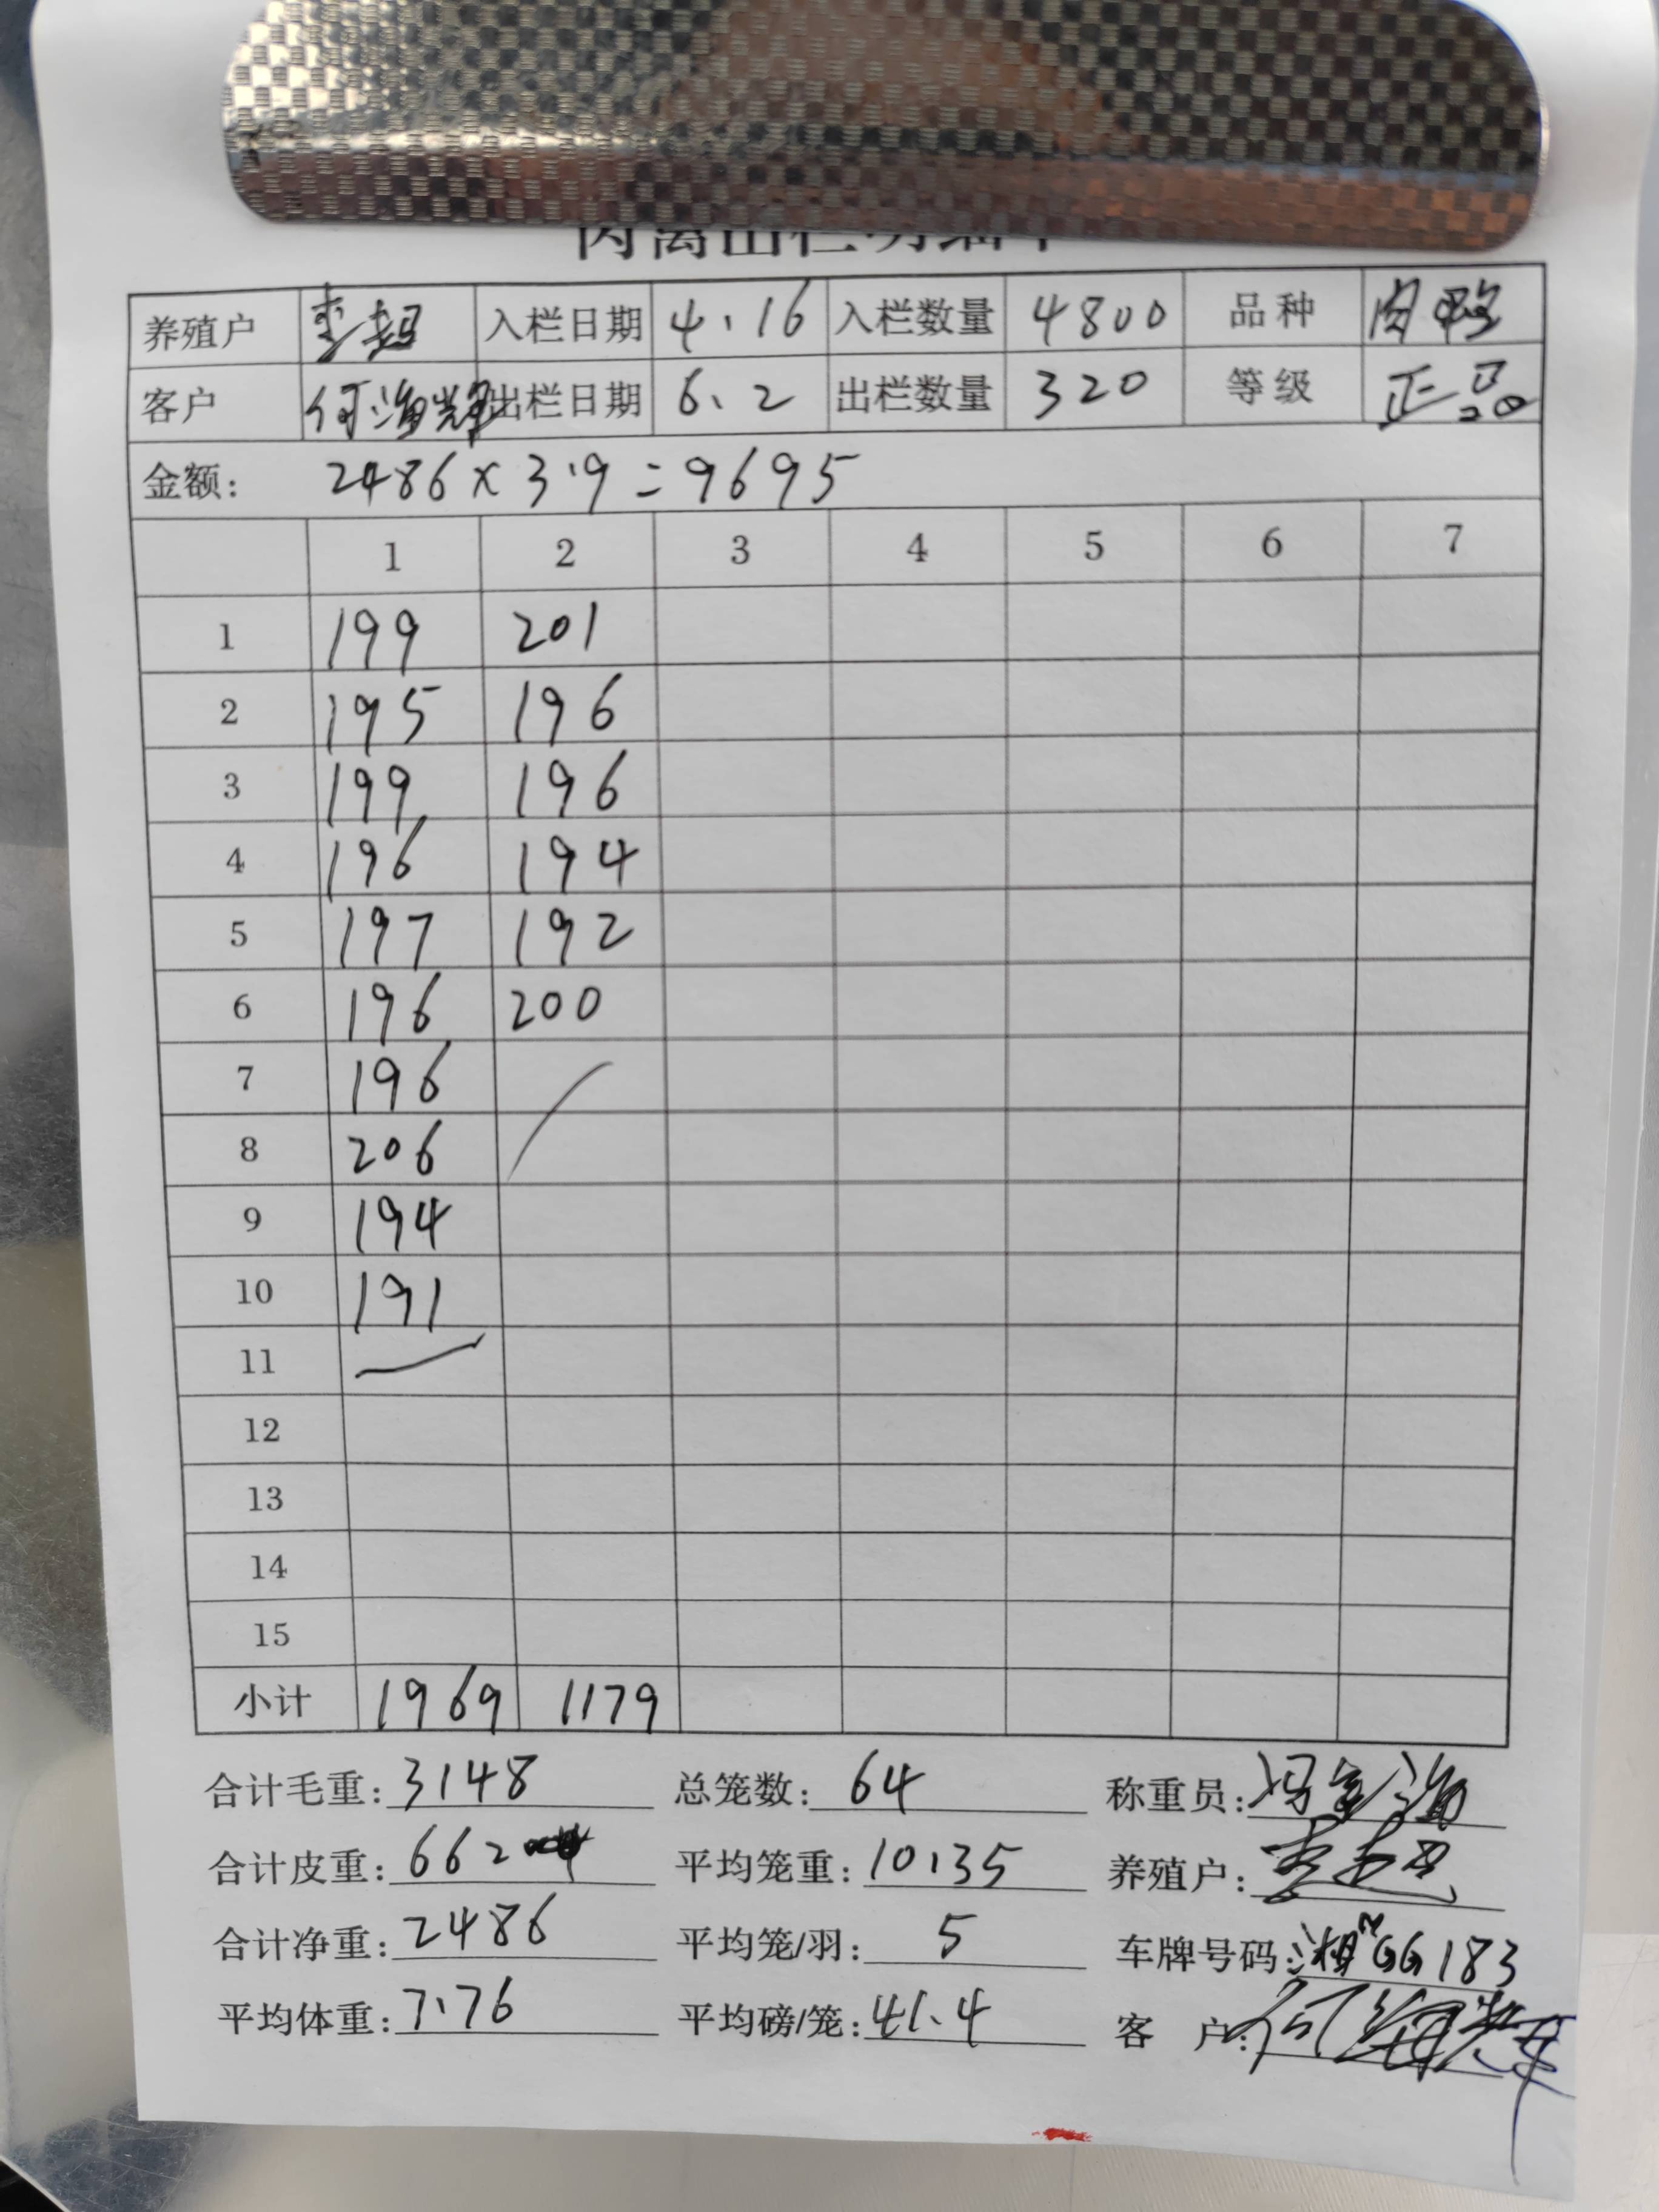 养殖户 李超 入栏日期 4.16 入栏数量 4800 品种 肉鸭
客户 何海辉 出栏日期 6.2 出栏数量 320 等级 正品
金额: 2486×3.9=9695
1 2 3 4 5 6 7
1 199 201
2 195 196
3 199 196
4 196 194
5 197 192
6 196 200
7 196
8 206
9 194
10 191
11
12
13
14
15
小计 1969 1179
合计毛重: 3148 总笼数: 64 称重员:
合计皮重: 662 平均笼重: 10.35 养殖户: 李超
合计净重: 2486 平均笼/羽: 5 车牌号码: 湘 GG183
平均体重: 7.76 平均磅/笼: 41.4 客 户: 何海辉